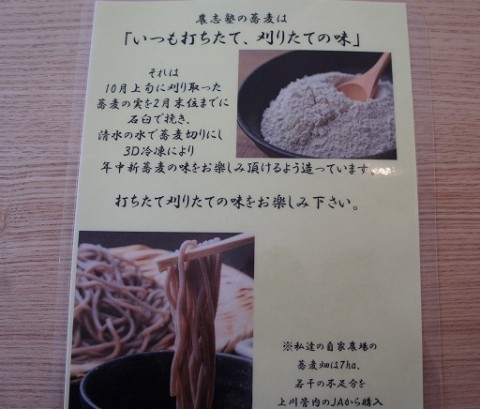 農志塾の蕎麦は
「いつも打ちたて、刈りたての味」
それは
10月上旬に刈り取った
蕎麦の実を2月末位までに
石臼で挽き、
清水の水で蕎麦切りにし
3D冷凍により
年中新蕎麦の味をお楽しみ頂けるよう造っています。
打ちたて刈りたての味をお楽しみ下さい。
※私達の自家農場の
蕎麦畑は7ha、
若干の不足分を
上川管内のJAから購入